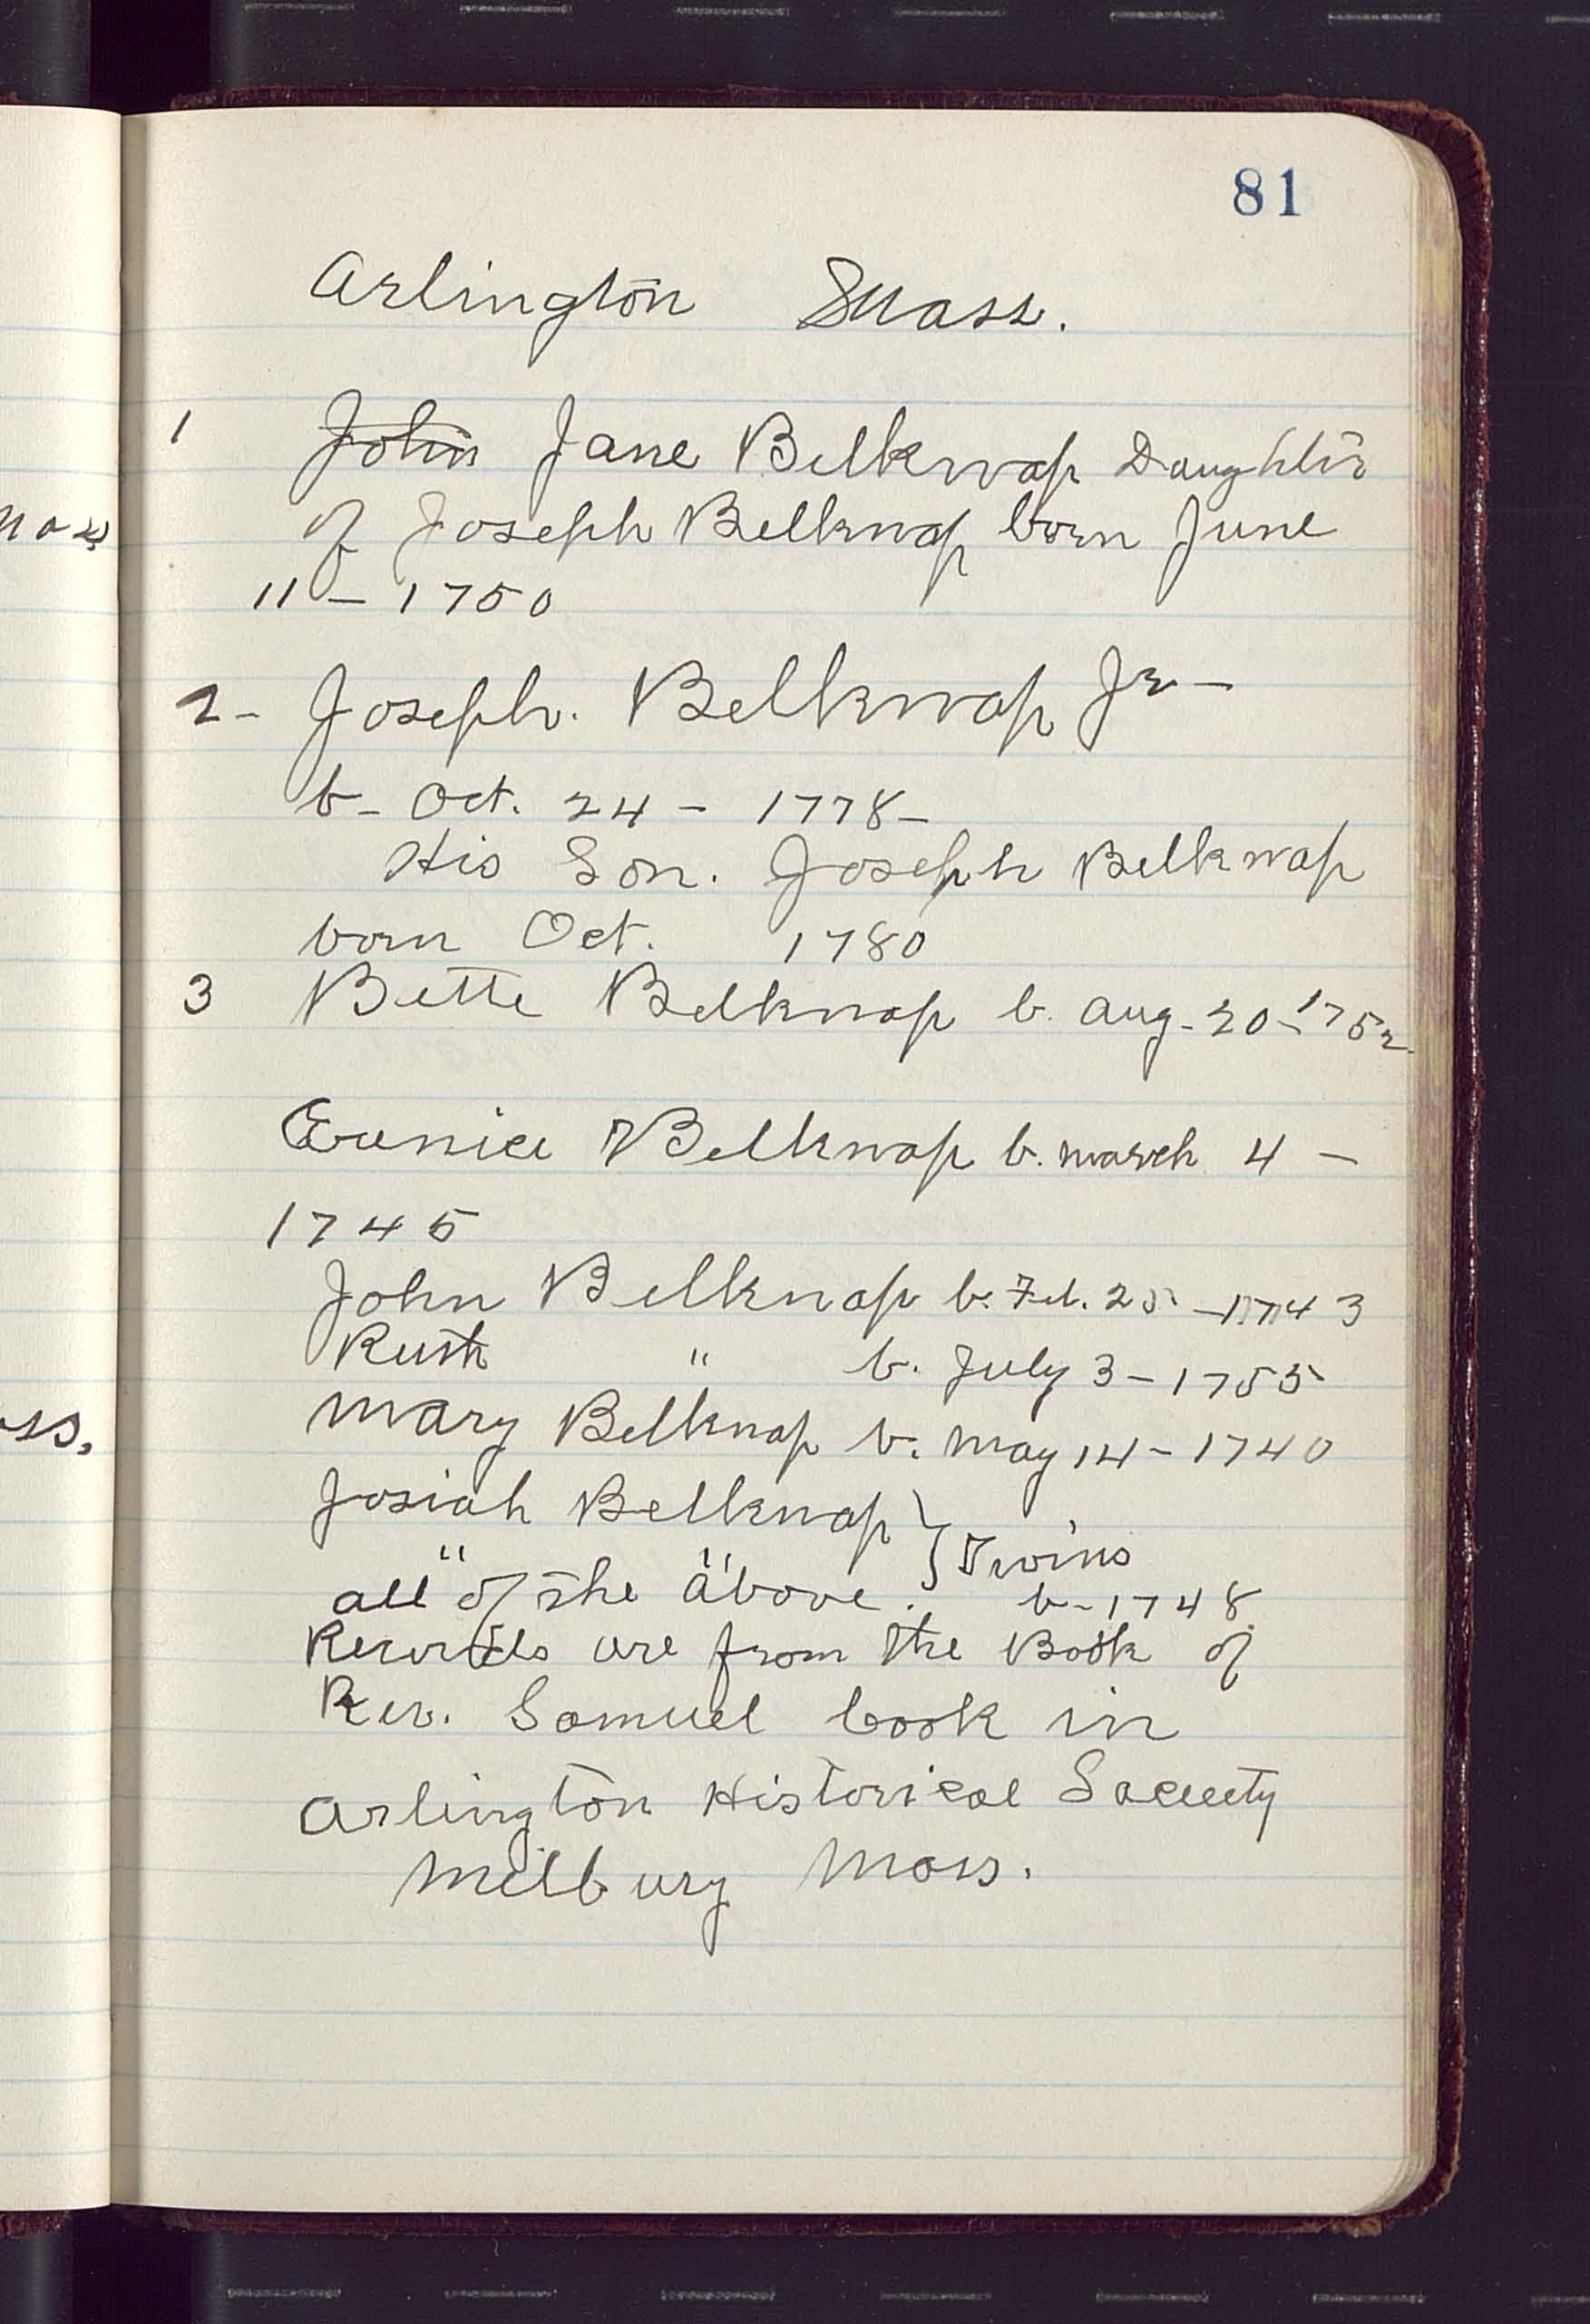 81
Arlington Mass.
1 John Jane Belknap Daughter
of Joseph Belknap born June
11 - 1750
2 - Joseph. Belknap Jr -
b - Oct. 24 - 1778 -
His Son. Joseph Belknap
born Oct. 1780
3 Bette Belknap b. Aug - 20 - 1752
Eunice Belknap b. march 4 -
1745
John Belknap b. Feb. 25 - 1743
Ruth " b. July 3 - 1755
Mary Belknap b. May 14 - 1740
Josiah Belknap } Twins
" "
all of the above. b - 1748
Records are from the Book of
Rev. Samuel Cook in
Arlington Historical Society
Milbury Mass.
ss.